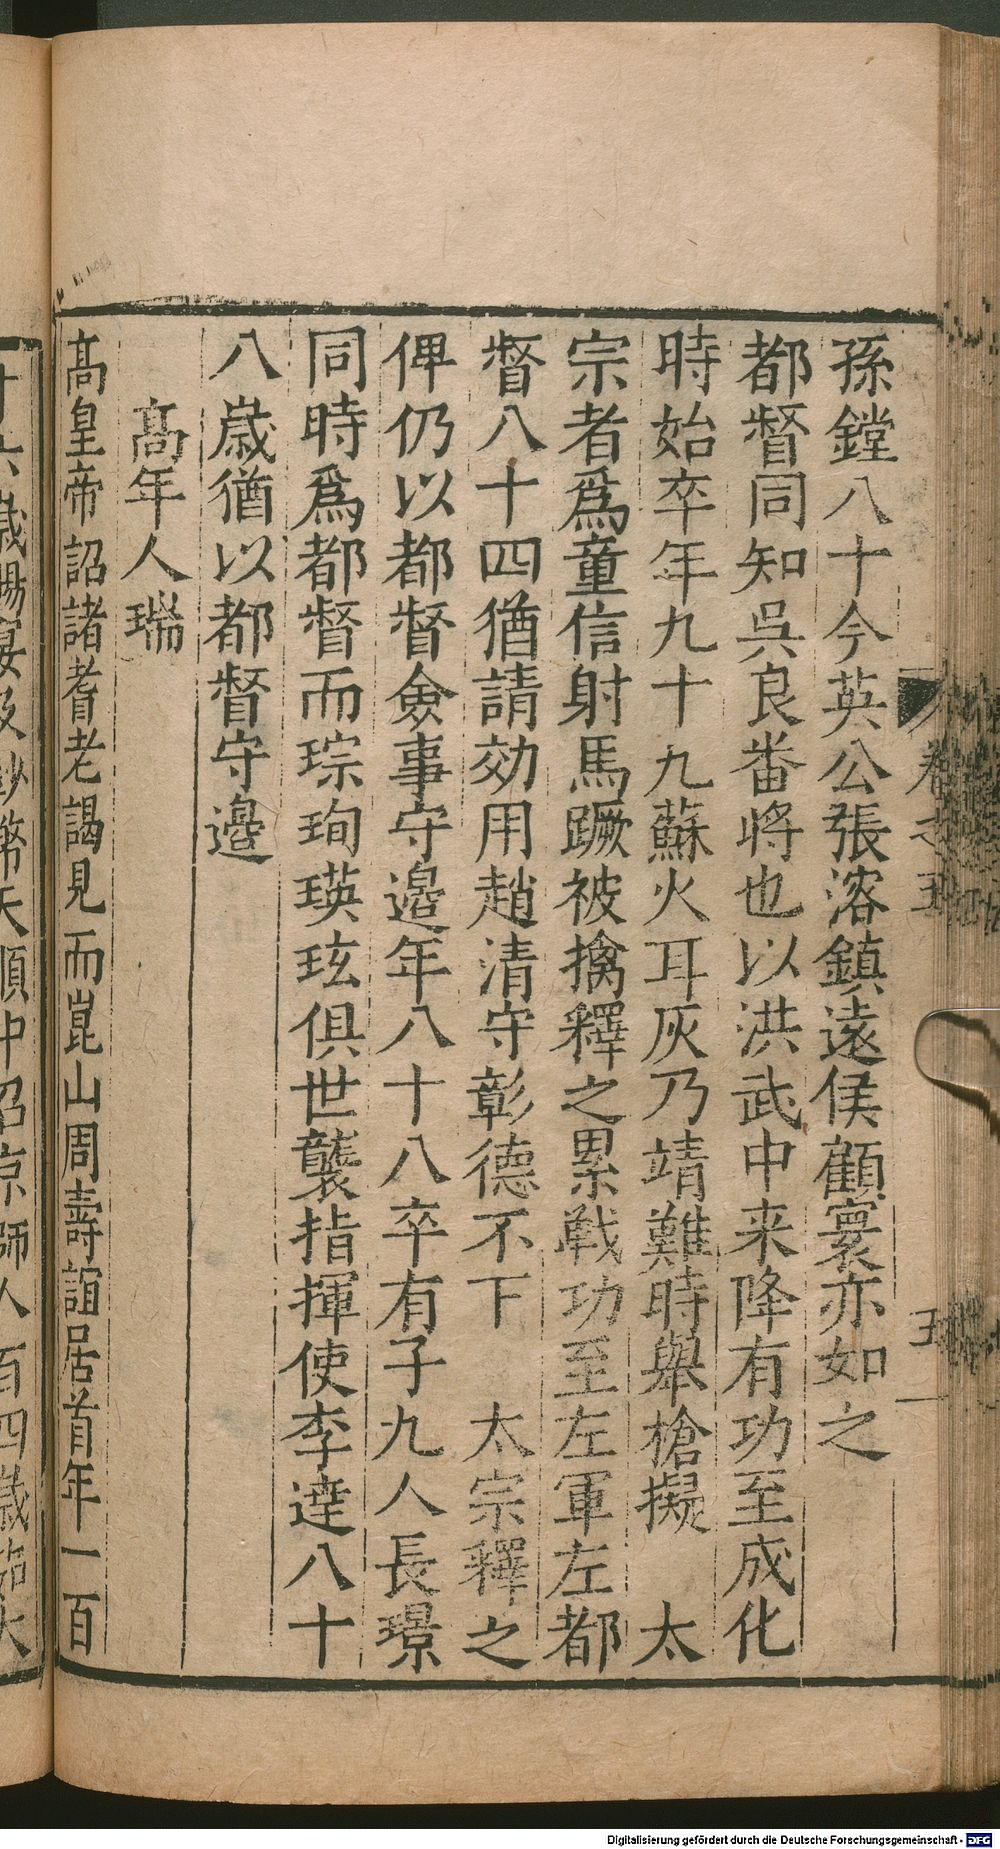 孫鏜八十今英公張溶鎮遠侯顧寰亦如之
都督同知吳良番將也以洪武中来降有功至成化
時始卒年九十九蘇火耳灰乃靖難時舉槍擬　太
宗者爲童信射馬蹶被擒釋之累戦功至左軍左都
督八十四猶請効用趙清守彰德不下　太宗釋之
俾仍以都督僉事守邉年八十八卒有子九人長璟
同時爲都督而琮珣瑛玹俱世襲指揮使李達八十
八歳猶以都督守邉
髙年人瑞
髙皇帝詔諸耆老謁見而崑山周壽誼居首年一百
十六歳賜宴及鈔幣天順中召京師人百四歳茹大
卷之五
五
Digitalisierung gefördert durch die Deutsche Forschungsgemeinschaft - DFG